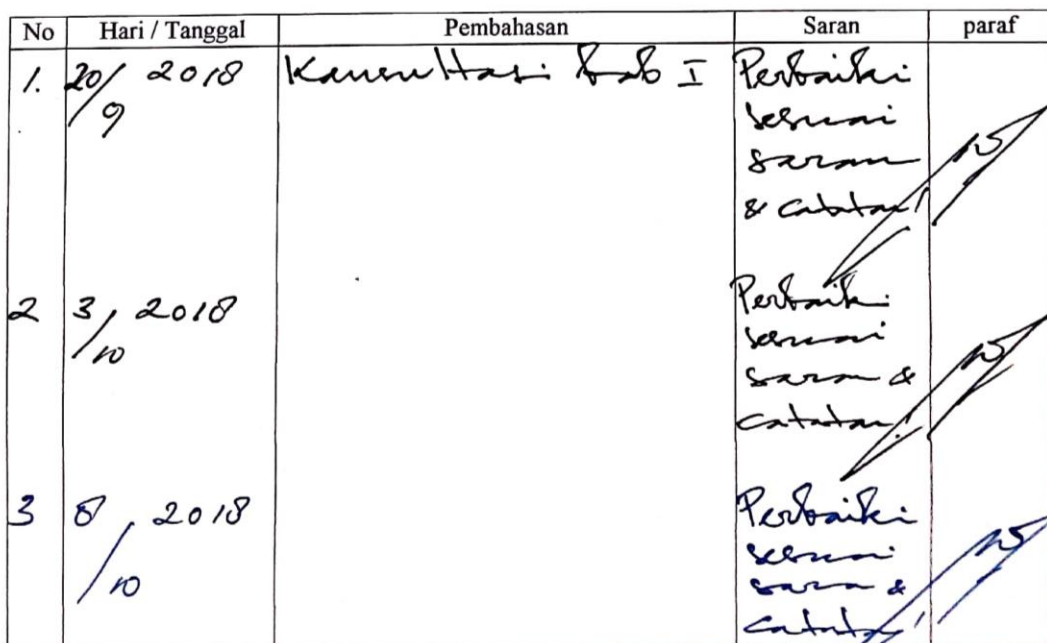 No Hari / Tanggal Pembahasan Saran paraf
1. 20/9 2018 Konsultasi bab I Perbaiki
sesuai
saran
& catatan!
2 3/10 2018 Perbaiki
sesuai
saran &
catatan!
3 8/10 2018 Perbaiki
sesuai
saran &
catatan!